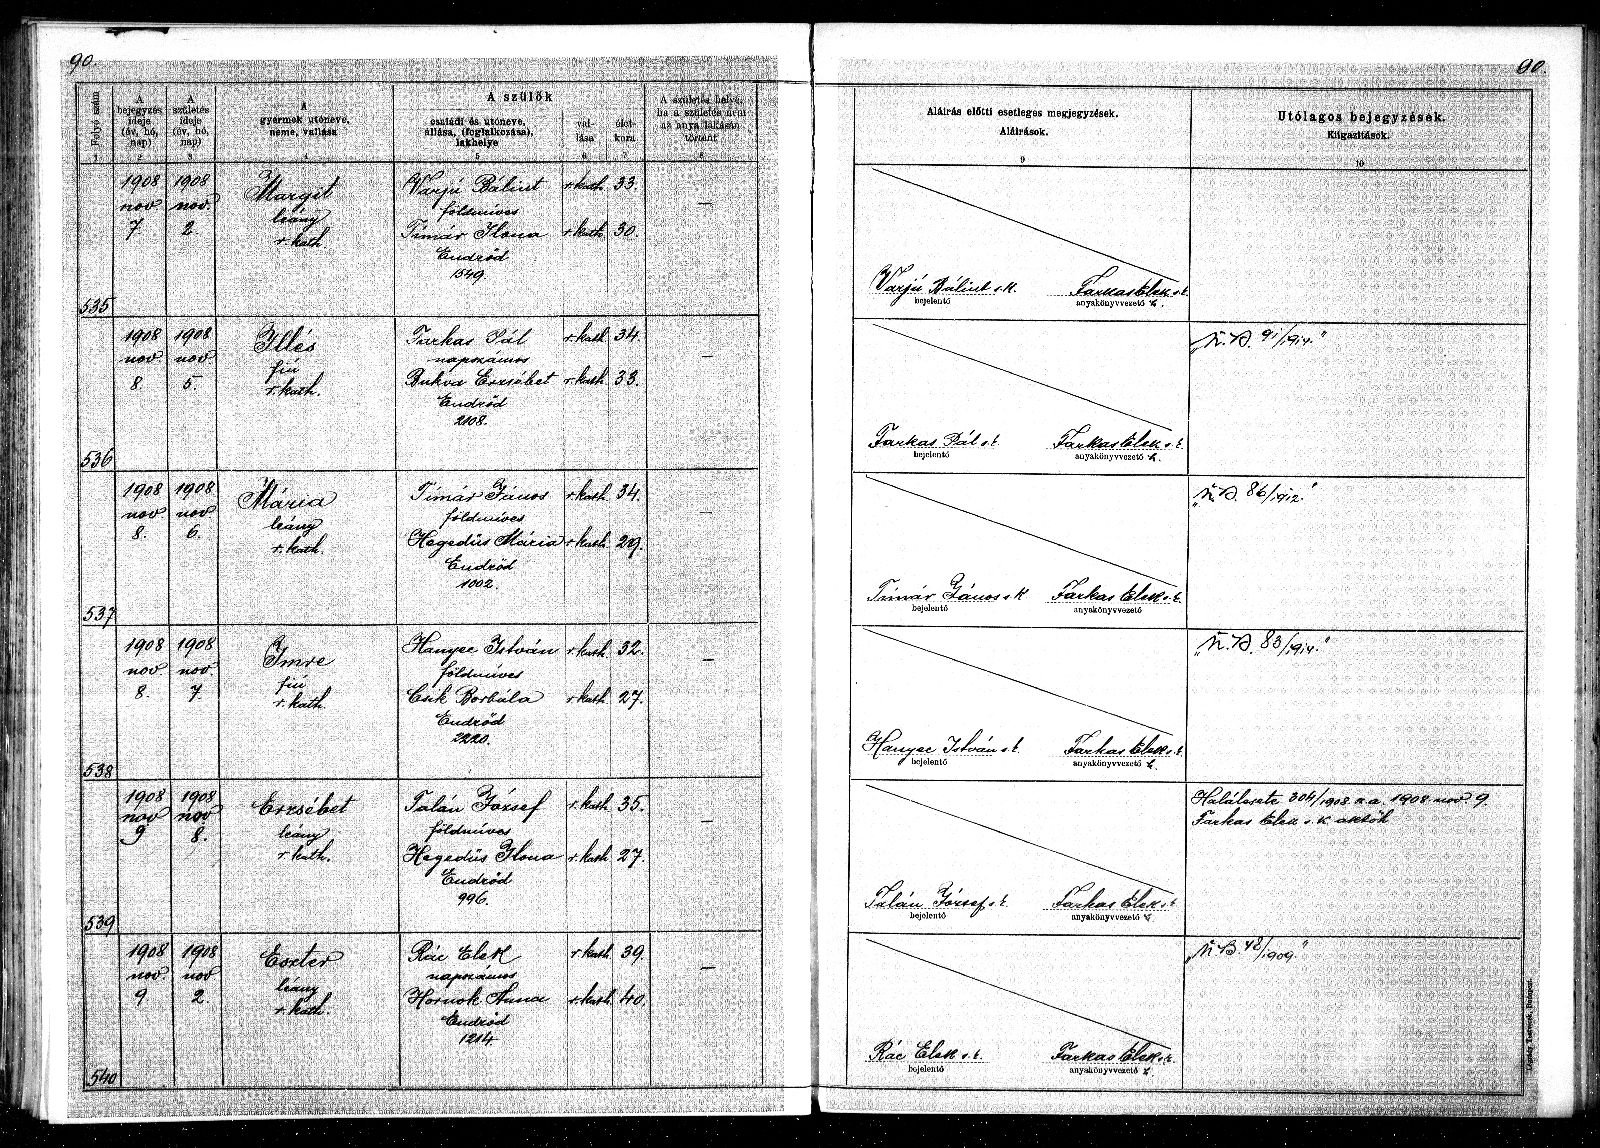 90.
Folyó szám
A bejegyzés ideje (év, hó, nap)
A születés ideje (év, hó, nap)
A gyermek utóneve, neme, vallása
A szülők
családi és utóneve, állása, (foglalkozása), lakhelye
vallása
életkora
A születés helye, ha a születés nem az anya lakásán történt
1 2 3 4 5 6 7 8
1908 1908 Margit Varjú Bálint r. kath. 33.
nov. nov. leány földmíves —
7. 2. r. kath. Tímár Ilona r. kath. 30.
Endrőd
1549.
535
1908 1908 Illés Farkas Pál r. kath. 34.
nov. nov. fiú napszámos —
8. 5. r. kath. Bukva Erzsébet r. kath. 33.
Endrőd
2108.
536
1908 1908 Mária Tímár János r. kath. 34.
nov. nov. leány földmíves —
8. 6. r. kath. Hegedüs Mária r. kath. 29.
Endrőd
1002.
537
1908 1908 Imre Hanyec István r. kath. 32.
nov. nov. fiú földmíves —
8. 7. r. kath. Csik Borbála r. kath. 27.
Endrőd
2220.
538
1908 1908 Erzsébet Talán József r. kath. 35.
nov nov leány földmíves —
9 8. r. kath. Hegedüs Ilona r. kath. 27.
Endrőd
996.
539
1908 1908 Eszter Rác Elek r. kath. 39.
nov. nov leány napszámos —
9 2. r. kath. Hornok Anna r. kath. 40.
Endrőd
1214.
540
90.
Aláírás előtti esetleges megjegyzések.
Aláírások.
Utólagos bejegyzések.
Kiigazítások.
9 10
Varjú Bálint s. k. Farkas Elek s. k.
bejelentő anyakönyvvezető h.
91/1914."
Farkas Pál s. k. Farkas Elek s. k.
bejelentő anyakönyvvezető h.
86/1912."
Tímár János s. k. Farkas Elek s. k.
bejelentő anyakönyvvezető
83/1914."
Hanyec István s. k. Farkas Elek s. k.
bejelentő anyakönyvvezető h.
Halálesete 304/1908 n. a. 1908. nov. 9.
Farkas Elek s. k.
Talán József s. k. Farkas Elek s. k.
bejelentő anyakönyvvezető h.
48/1909."
Rác Elek s. k. Farkas Elek s. k.
bejelentő anyakönyvvezető h.
Budapest.